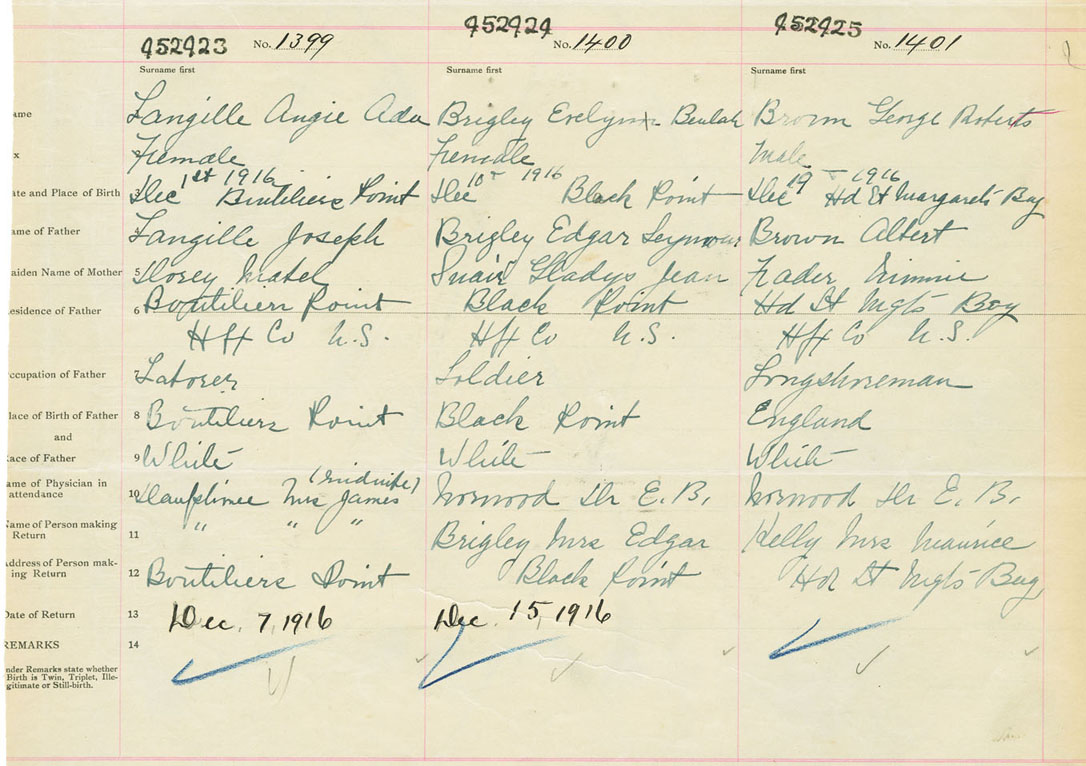 452423 No. 1399 452424 No. 1400 452425 No. 1401
Surname first Surname first Surname first
ame Langille Angie Ada Brigley Evelyn Beulah Brown George Roberts
x Female Female Male
ate and Place of Birth 3 Dec 1st 1916 Boutiliers Point Dec 10 1916 Black Point Dec 19 1916 Hd St Margarets Bay
ame of Father Langille Joseph Brigley Edgar Seymour Brown Albert
aiden Name of Mother 5 Dorey Mabel Snair Gladys Jean Fader Minnie
esidence of Father 6 Boutiliers Point Black Point Hd St Mgts Bay
Hfx Co N.S. Hfx Co N.S. Hfx Co N.S.
ccupation of Father 7 Laborer Soldier Longshoreman
lace of Birth of Father 8 Boutiliers Point Black Point England
and
ace of Father 9 White White White
ame of Physician in attendance 10 Dauphinee Mrs James (midwife) Norwood Dr E. B. Norwood Dr E. B.
Name of Person making Return 11 " " " Brigley Mrs Edgar Kelly Mrs Maurice
Address of Person mak-ing Return 12 Boutiliers Point Black Point Hd St Mgts Bay
Date of Return 13 Dec. 7, 1916 Dec. 15, 1916
REMARKS 14
nder Remarks state whether
Birth is Twin, Triplet, Ille-
gitimate or Still-birth.